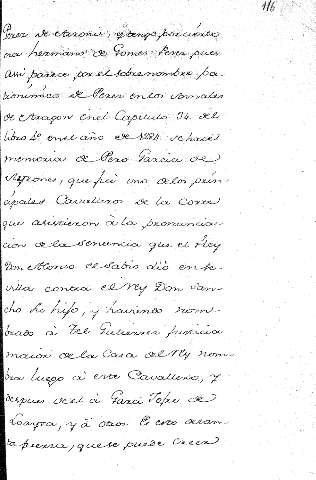 116
Perez de Ayrones, y tengo por cierto
era hermano de Gomez Perez pues
assi parece por el sobrenombre, pa-
tronimico de Perez en los Annales
de Aragon en el Capitulo 34. del
libro 4º en el año de 1284. se hace
memoria de Pero Garcia de
Ayrones, que fue uno de los prin-
cipales Cavalleros de la Corte
que asistieron à la pronuncia-
cion de la sentencia que el Rey
Don Alonso el Sabio dió en Se-
villa contra el Rey Don San-
cho su hijo, y haviendo nom-
brado à Tel Gutierrez Justicia
maior de la Casa del Rey nom-
bra luego à este Cavallero, y
despues de el à Garci Jofre de
Loaysa, y à otros. Pero
que se puede creer